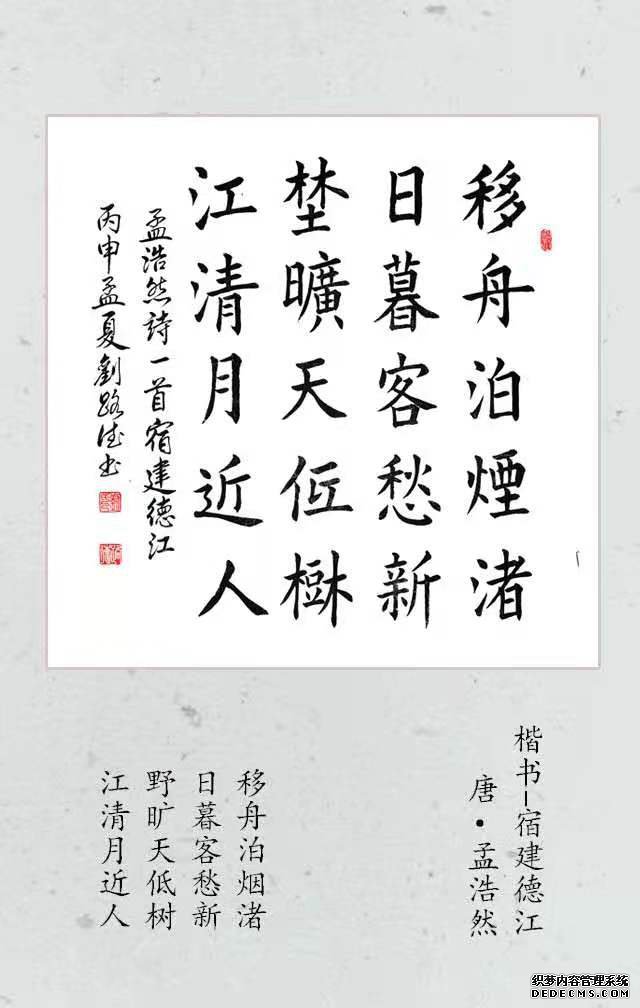 移舟泊煙渚
日暮客愁新
埜曠天低樹
江清月近人
孟浩然詩一首宿建德江
丙申孟夏劉路德书
楷书-宿建德江
唐·孟浩然
移舟泊烟渚
日暮客愁新
野旷天低树
江清月近人
织梦内容管理系统
DEDECMS.COM